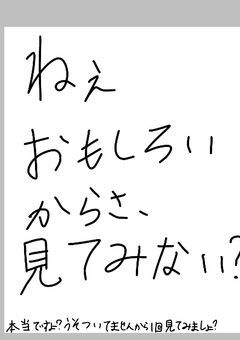 ねぇ
おもしろい
からさ、
見てみない?
本当ですよ?うそついてませんから1回見てみましょ?